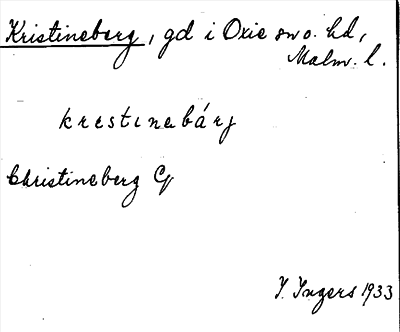 Kristineberg, gd i Oxie sn o. hd,
Malm. l.
krestinebárj
Christineberg Cf
I. Ingers 1933